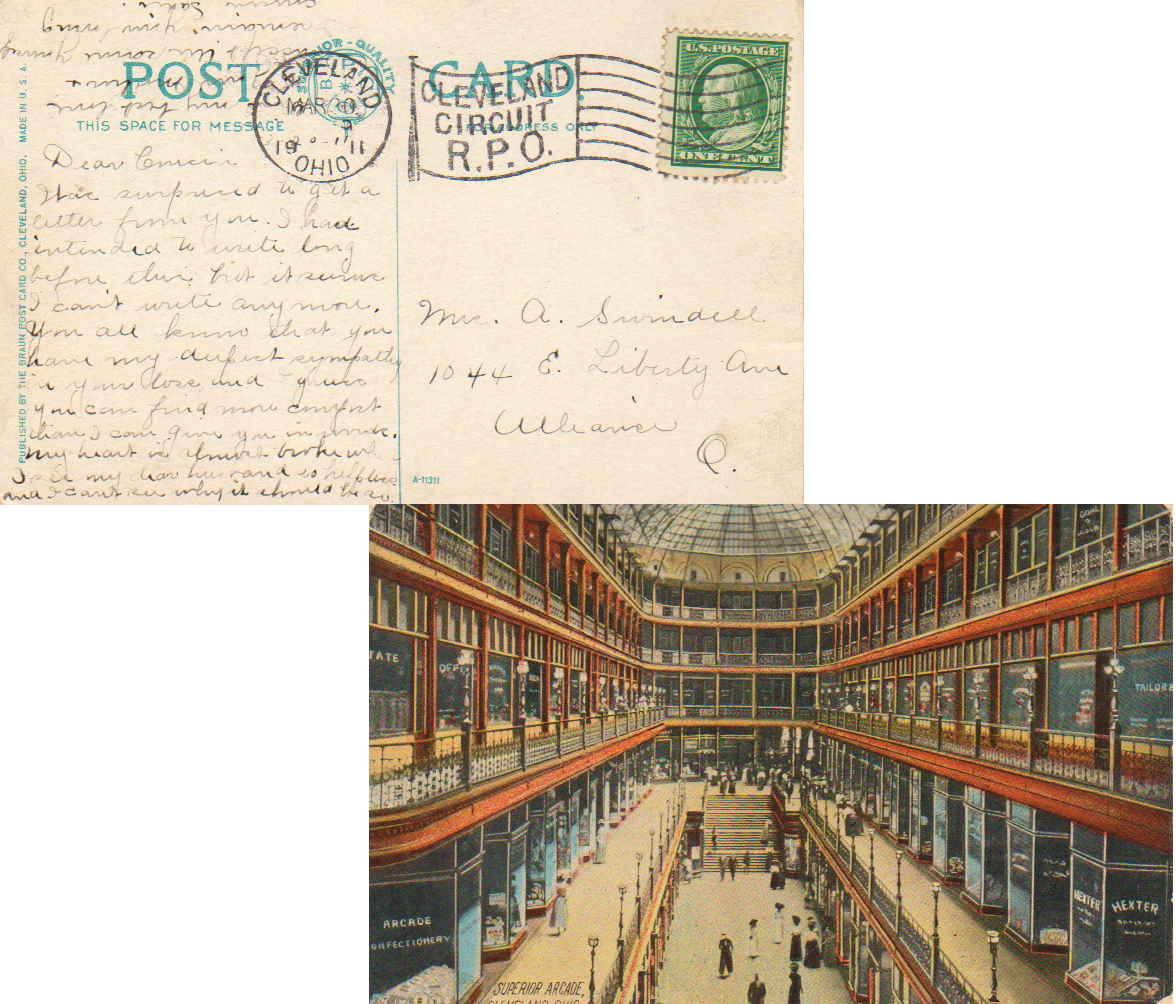 POST CARD.
SUPERIOR-QUALITY
THIS SPACE FOR MESSAGE
FOR ADDRESS ONLY
CLEVELAND
MAR 10
19 11
OHIO
CLEVELAND
CIRCUIT
R.P.O.
U.S.POSTAGE
ONE CENT
PUBLISHED BY THE BRAUN POST CARD CO., CLEVELAND, OHIO. MADE IN U.S.A.
Dear Cousin
Was surprised to get a
letter from you. I had
intended to write long
before this but it seems
I can't write any more.
You all know that you
have my deepest sympathy
in your loss and I guess
you can find more comfort
than I can give you in words.
My heart is almost broke when
I see my dear husband so helpless
and I can't see why it should be so.
Mrs. A. Swindell
1044 E. Liberty Ave
Alliance
O.
A-11311
TATE
OFFI
TAILORS
ARCADE
CONFECTIONERY
HEXTER
HEXTER
SUPERIOR ARCADE,
CLEVELAND, OHIO.